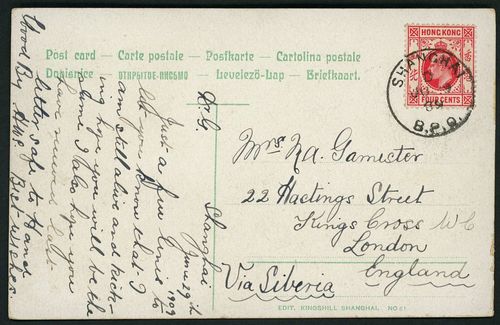 Post card — Carte postale — Postkarte — Cartolina postale
Dopisnice ОТКРЫТОЕ-ПИСЬМО — Levelező-Lap — Briefkaart.
HONG KONG
FOUR CENTS
SHANGHAI
B.P.O.
Mrs. N.A. Gamester
22 Hastings Street
Kings Cross W C
London
England
Via Siberia
EDIT. KINGSHILL SHANGHAI NO 61
Shanghai
June 29th
1909
Dr G
Just a few lines to
let you know that I
am still alive and kick-
ing hope you will be the
same I also hope you
have received last
letter safe to hand
Good Bye Best wishes.